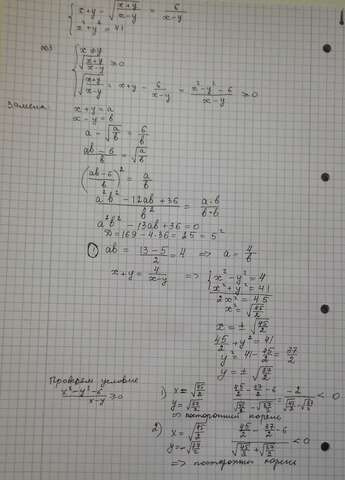 x+y - √((x+y)/(x-y)) = 6/(x-y)
x²+y² = 41
x≠y
(x+y)/(x-y) ≥ 0
√((x+y)/(x-y)) = x+y - 6/(x-y) = (x²-y²-6)/(x-y) ≥ 0
Замена:
x+y = a
x-y = b
a - √(a/b) = 6/b
(ab-6)/b = √(a/b)
((ab-6)/b)² = a/b
(a²b² - 12ab + 36)/b² = (a·b)/(b·b)
a²b² - 13ab + 36 = 0
D = 169 - 4·36 = 25 = 5²
① ab = (13-5)/2 = 4 ⇒ a = 4/b
x+y = 4/(x-y) ⇒ { x²-y² = 4
x²+y² = 41
2x² = 45
x² = 45/2
x = ± √(45/2)
45/2 + y² = 41
y² = 41 - 45/2 = 37/2
y = ± √(37/2)
Проверяем условие
(x²-y²-6)/(x-y) ≥ 0
1) x = √(45/2)
y = √(37/2)
(45/2 - 37/2 - 6)/(√(45/2) - √(37/2)) = -2/(√(45/2) - √(37/2)) < 0
⇒ посторонний корень
2) x = √(45/2)
y = -√(37/2)
(45/2 - 37/2 - 6)/(√(45/2) + √(37/2)) < 0
⇒ посторонний корень